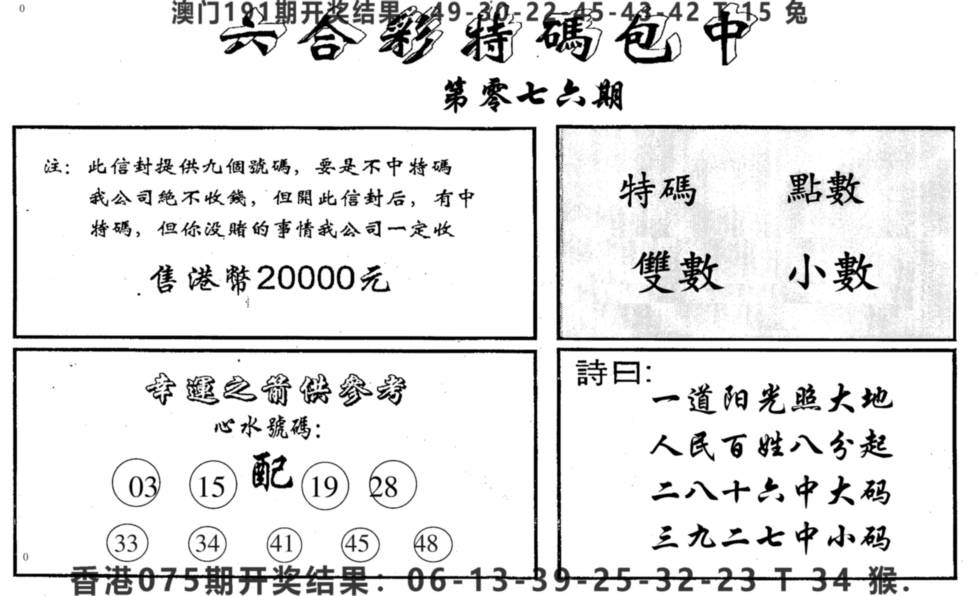 0
澳门191期开奖结果：49-30-22-45-43-42 T 15 兔
六合彩特碼包中
第零七六期
注：此信封提供九個號碼，要是不中特碼
我公司絕不收錢，但開此信封后，有中
特碼，但你没賭的事情我公司一定收
售港幣20000元
特碼 點數
雙數 小數
幸運之前供參考
心水號碼：
03 15 配 19 28
33 34 41 45 48
詩曰：
一道阳光照大地
人民百姓八分起
二八十六中大码
三九二七中小码
0
香港075期开奖结果：06-13-39-25-32-23 T 34 猴.